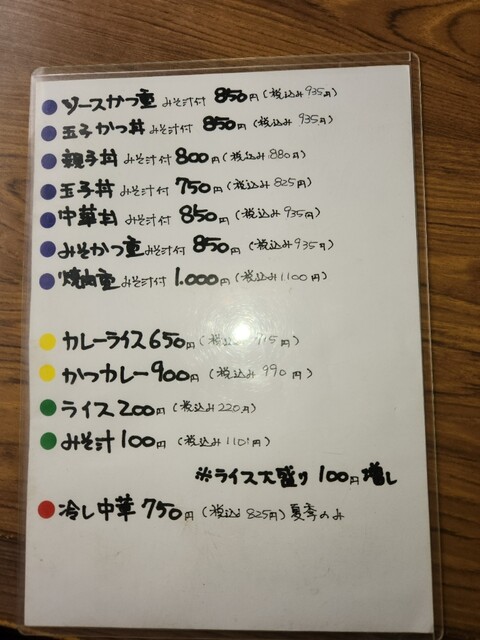 ソースかつ重 みそ汁付 850円(税込み935円)
玉子かつ丼 みそ汁付 850円(税込み935円)
親子丼 みそ汁付 800円(税込み880円)
玉子丼 みそ汁付 750円(税込み825円)
中華丼 みそ汁付 850円(税込み935円)
みそかつ重 みそ汁付 850円(税込み935円)
焼肉重 みそ汁付 1.000円(税込み1.100円)
カレーライス650円(税込 715円)
かつカレー900円(税込み 990円)
ライス200円(税込み220円)
みそ汁100円(税込み110円)
※ライス大盛り 100円増し
冷し中華 750円(税込み825円)夏季のみ